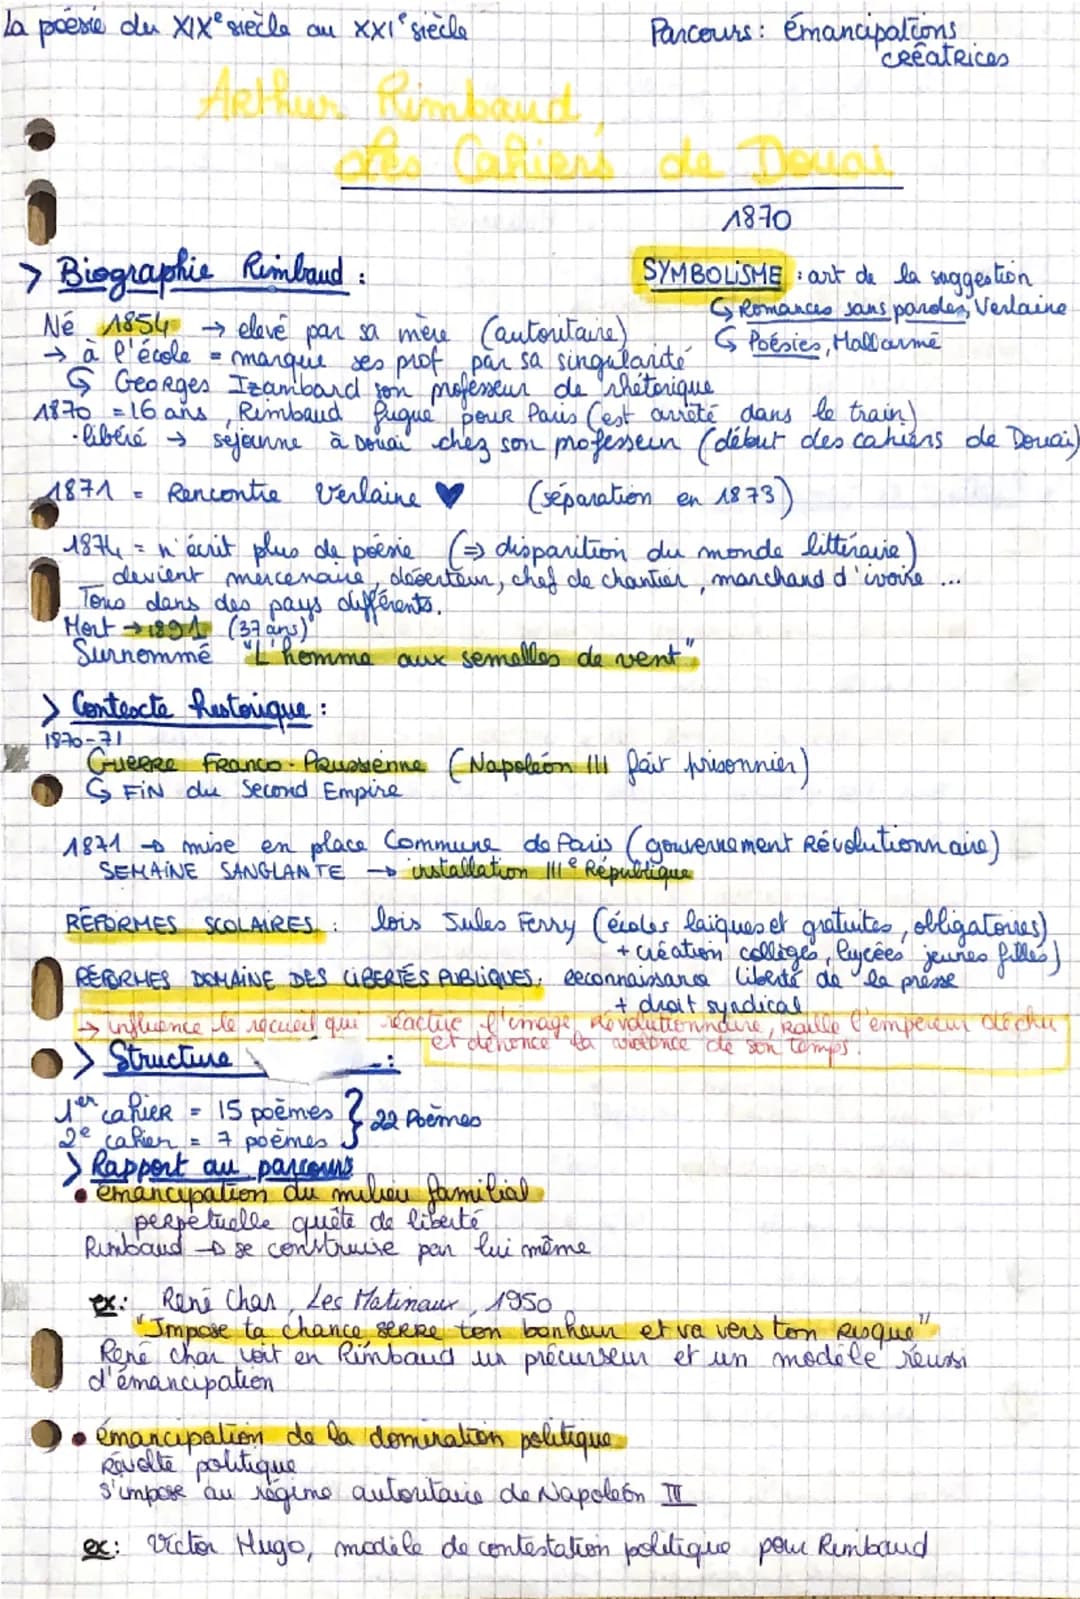 La poésie du XIXe siècle au XXIe siècle
Parcours : émancipations
créatrices
Arthur Rimbaud,
Les Cahiers de Douai
1870
> Biographie Rimbaud :
SYMBOLISME : art de la suggestion
↳ Romances sans paroles, Verlaine
↳ Poésies, Mallarmé
Né 1854 → élevé par sa mère (autoritaire)
→ à l'école = marque ses prof par sa singularité
↳ Georges Izambard son professeur de rhétorique
1870 = 16 ans, Rimbaud fugue pour Paris (est arrêté dans le train)
· libéré → séjourne à Douai chez son professeur (début des cahiers de Douai)
1871 = Rencontre Verlaine ♥ (séparation en 1873)
1874 = n'écrit plus de poésie (=> disparition du monde littéraire)
devient mercenaire, déserteur, chef de chantier, marchand d'ivoire ...
Tous dans des pays différents.
Mort → 1891 (37 ans)
Surnommé "L'homme aux semelles de vent"
> Contexte historique :
1870-71
Guerre Franco-Prussienne (Napoléon III fait prisonnier)
↳ FIN du Second Empire
1871 → mise en place Commune de Paris (gouvernement Révolutionnaire)
SEMAINE SANGLANTE → installation IIIe République
RÉFORMES SCOLAIRES : lois Jules Ferry (écoles laïques et gratuites, obligatoires)
+ création collèges, lycées jeunes filles)
RÉFORMES DOMAINE DES LIBERTÉS PUBLIQUES : reconnaissance liberté de la presse
+ droit syndical
→ influence le recueil qui réactive l'image révolutionnaire, raille l'empereur déchu
et dénonce la violence de son temps.
> Structure :
1er cahier = 15 poèmes } 22 Poèmes
2e cahier = 7 poèmes
> Rapport au parcours
• émancipation du milieu familial
perpétuelle quête de liberté
Rimbaud → se construire par lui même
ex : René Char, Les Matinaux, 1950
"Impose ta chance serre ton bonheur et va vers ton risque"
René char voit en Rimbaud un précurseur et un modèle réussi
d'émancipation
• émancipation de la domination politique
Révolte politique
s'impose au régime autoritaire de Napoléon III
ex : Victor Hugo, modèle de contestation politique pour Rimbaud